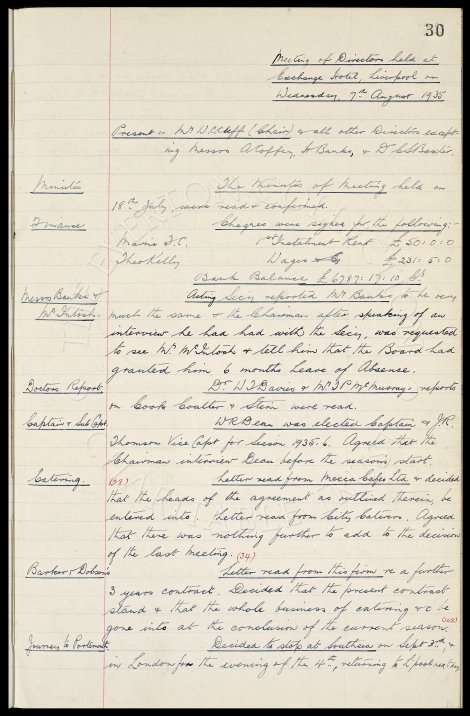 30
Meeting of Directors held at
Exchange Hotel, Liverpool on
Wednesday, 7th August 1935
Present :- Mr W.C. Cuff (Chair) & all other Directors except-
ing Messrs A. Coffey, H Banks, & Dr C.S. Baxter.
Minutes
The Minutes of Meeting held on
18th July, were read & confirmed.
Finance
Cheques were signed for the following:-
Marine F.C. 1st Instalment Rent £50:0:0
Theo Kelly Wages &c £231:5:0
Bank Balance £6787:17:10 Cr
Messrs Banks &
Mc Intosh.
Acting Secy reported Mr Banks to be very
much the same & the Chairman after speaking of an
interview he had had with the Secy, was requested
to see Mr McIntosh & tell him that the Board had
granted him 6 months Leave of Absence.
Doctors Report
Dr W.J Davies & Mr J P McMurray's reports
on Cook Coulter & Stein were read.
Captain & Sub Capt.
W.R. Dean was elected Captain & J.R.
Thomson Vice Capt for Season 1935.6. Agreed that the
Chairman interview Dean before the season's start.
Catering
(33)
Letter read from Mecca Cafes Ltd & decided
that the heads of the agreement as outlined therein be
entered into. Letter read from City Caterers. Agreed
that there was nothing further to add to the decision
of the last Meeting. (34)
Barker & Dobsons
Letter read from this firm re a further
3 years contract. Decided that the present contract
stand & that the whole business of catering &c be
gone into at the conclusion of the current season.
Journey to Portsmouth
Decided to stop at Southsea on Sept 3rd, &
in London for the evening of the 4th, returning to L'pool next day